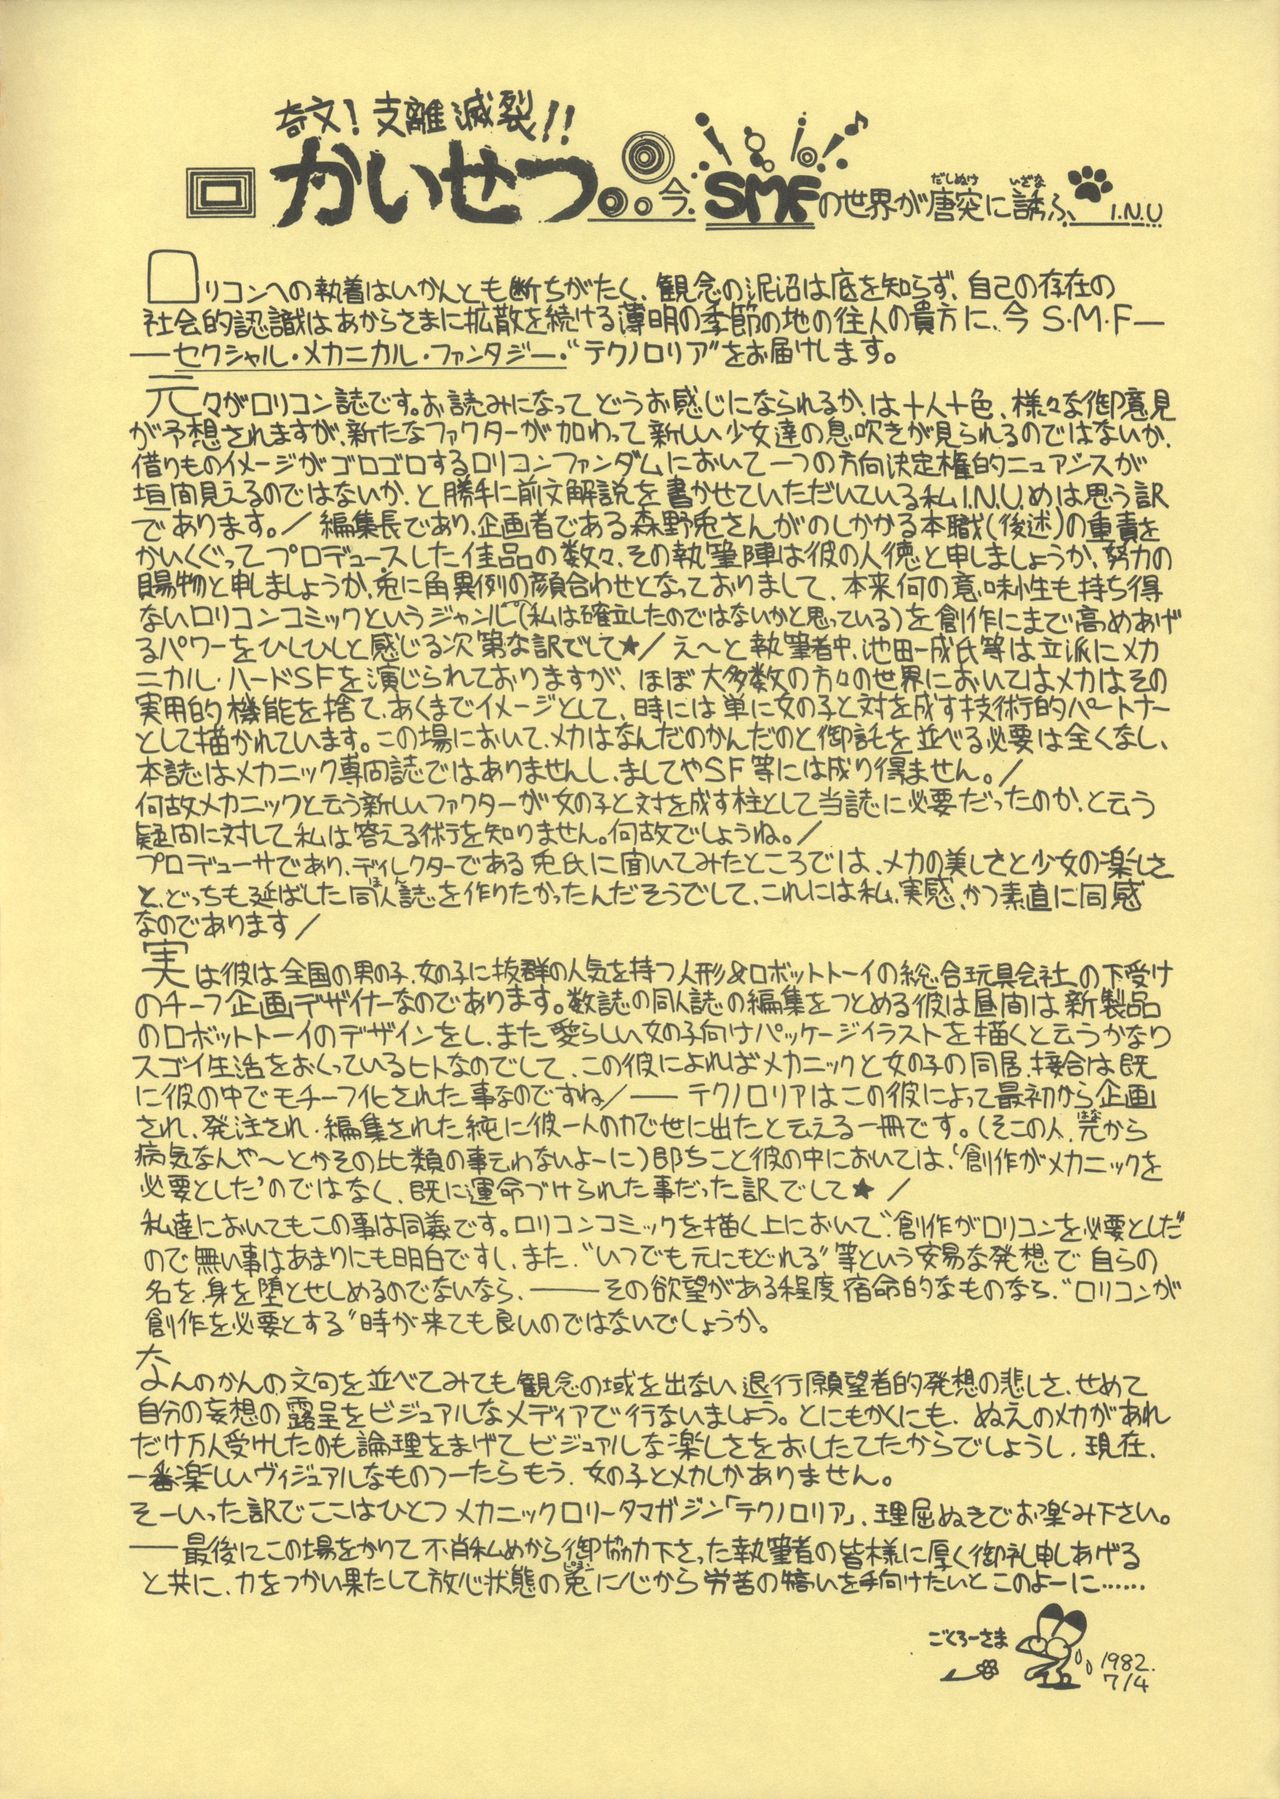 奇文！支離滅裂!!
かいせつ。今.SMFの世界が唐突に誘ふ、I.N.U
だしぬけ いざな
ロリコンへの執着はいかんとも断ちがたく、観念の泥沼は底を知らず、自己の存在の
社会的認識はあからさまに拡散を続ける薄明の季節の地の住人の貴方に、今S・M・F―
―セクシャル・メカニカル・ファンタジー・“テクノロリア”をお届けします。
元々がロリコン誌です。お読みになってどうお感じになられるか、は十人十色、様々な御意見
が予想されますが、新たなファクターが加わって新しい少女達の息吹きが見られるのではないか、
借りものイメージがゴロゴロするロリコンファンダムにおいて一つの方向決定権的ニュアンスが
垣間見えるのではないか、と勝手に前文解説を書かせていただいている私I.N.U.めは思う訳
であります。/編集長であり、企画者である森野兎さんがのしかかる本職(後述)の重責を
かいくぐってプロデュースした佳品の数々、その執筆陣は彼の人徳と申しましょうか、努力の
賜物と申しましょうか、兎に角異例の顔合わせとなっておりまして、本来何の意味性も持ち得
ないロリコンコミックというジャンル(私は確立したのではないかと思っている)を創作にまで高めあげ
るパワーをひしひしと感じる次第な訳でして★/え～と執筆者中、池田一成氏等は立派にメカ
ニカル・ハードSFを演じられておりますが、ほぼ大多数の方々の世界においてはメカはその
実用的機能を捨て、あくまでイメージとして、時には単に女の子と対を成す技術的パートナー
として描かれています。この場において、メカはなんだのかんだのと御託を並べる必要は全くなし、
本誌はメカニック専門誌ではありませんし、ましてやSF等には成り得ません。/
何故メカニックと云う新しいファクターが女の子と対を成す柱として当誌に必要だったのか、と云う
疑問に対して私は答える術を知りません。何故でしょうね。/
プロデューサであり、ディレクターである兎氏に聞いてみたところでは、メカの美しさと少女の楽しさ
と、どっちも延ばした同人誌を作りたかったんだそうでして、これには私、実感、かつ素直に同感
なのであります/
実は彼は全国の男の子、女の子に抜群の人気を持つ人形&ロボットトーイの総合玩具会社の下受け
のチーフ企画デザイナーなのであります。数誌の同人誌の編集をつとめる彼は昼間は新製品
のロボットトーイのデザインをし、また愛らしい女の子向けパッケージイラストを描くと云うかなり
スゴイ生活をおくっているヒトなのでして、この彼によればメカニックと女の子の同居、接合は既
に彼の中でモチーフ化された事なのですね/――テクノロリアはこの彼によって最初から企画
され、発注され、編集された純に彼一人の力で世に出たと云える一冊です。(そこの人、完から
病気なんや～とかその比類の事云わないよーに)即ちこと彼の中においては、‘創作がメカニックを
必要とした’のではなく、既に運命づけられた事だった訳でして★/
私達においてもこの事は同義です。ロリコンコミックを描く上において“創作がロリコンを必要とした”
ので無い事はあまりにも明白ですし、また、“いつでも元にもどれる”等という安易な発想で自らの
名を、身を堕とせしめるのでないなら、――その欲望がある程度宿命的なものなら、“ロリコンが
創作を必要とする”時が来ても良いのではないでしょうか。
なんのかんの文句を並べてみても観念の域を出ない退行願望者的発想の悲しさ、せめて
自分の妄想の露呈をビジュアルなメディアで行ないましょう。とにもかくにも、ぬえのメカがあれ
だけ万人受けしたのも論理をまげてビジュアルな楽しさをおしたてたからでしょうし、現在、
一番楽しいヴィジュアルなものつーたらもう、女の子とメカしかありません。
そーいった訳でここはひとつメカニックロリータマガジン「テクノロリア」、理屈ぬきでお楽み下さい。
――最後にこの場をかりて不肖私めから御協力下さった執筆者の皆様に厚く御礼申しあげる
と共に、力をつかい果たして放心状態の兎に心から労苦の犒いを手向けたいとこのよーに……
ごくろーさま
1982.
7/4